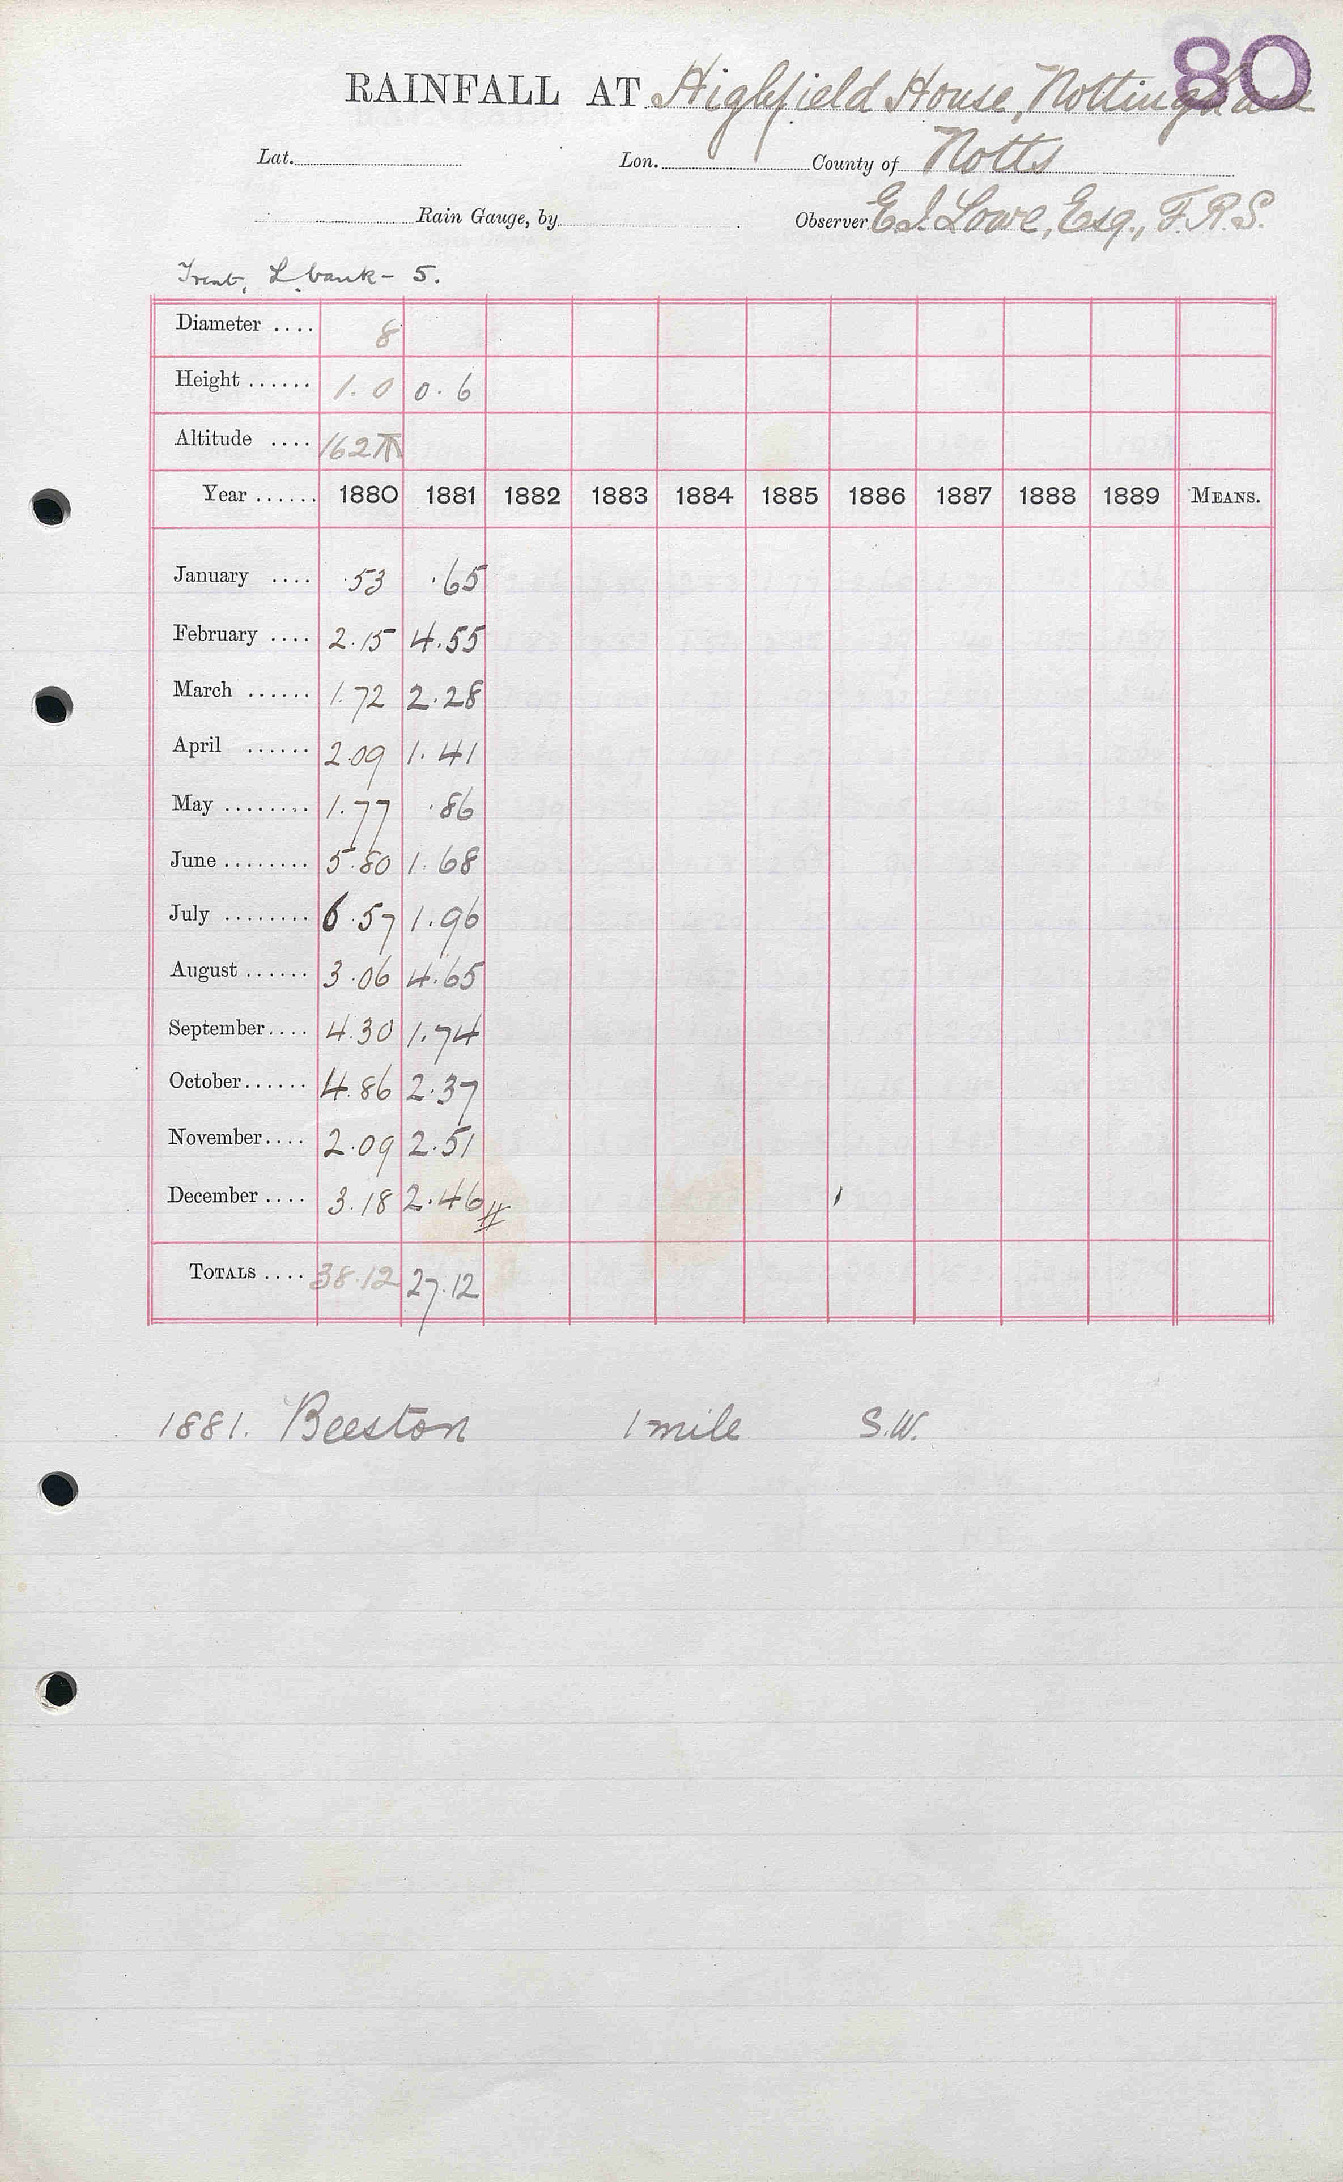 80
RAINFALL AT Highfield House, Nottingham
Lat. Lon. County of Notts
Rain Gauge, by Observer E.J. Lowe, Esq., F.R.S.
Trent, L. bank - 5.
Diameter .... 8
Height ...... 1.0 0.6
Altitude .... 162
Year ...... 1880 1881 1882 1883 1884 1885 1886 1887 1888 1889 MEANS.
January .... .53 .65
February .... 2.15 4.55
March ...... 1.72 2.28
April ...... 2.09 1.41
May ........ 1.77 .86
June ........ 5.80 1.68
July ........ 6.57 1.96
August ...... 3.06 4.65
September.... 4.30 1.74
October...... 4.86 2.37
November.... 2.09 2.51
December .... 3.18 2.46
TOTALS .... 38.12 27.12
1881. Beeston 1 mile S.W.